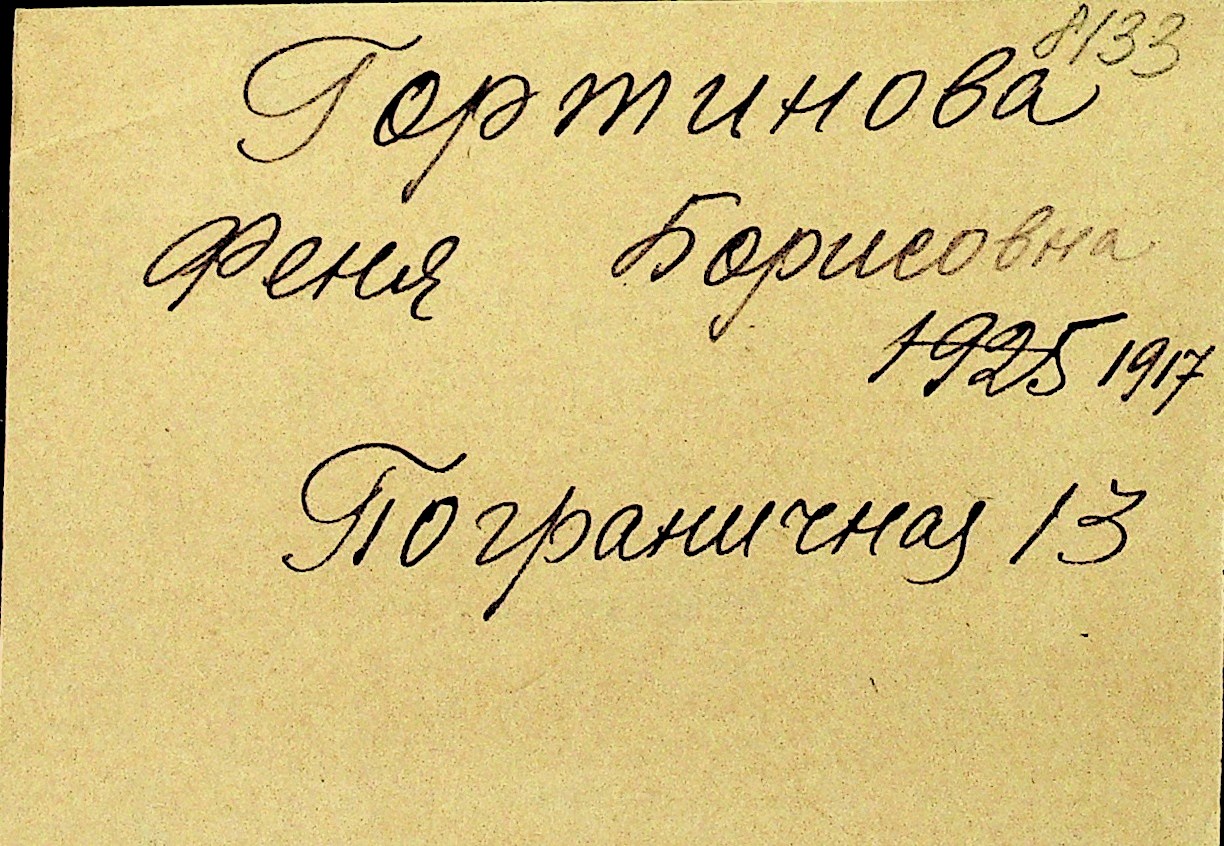 8133
Гортинова
Феня Борисовна
1925 1917
Пограничная 13